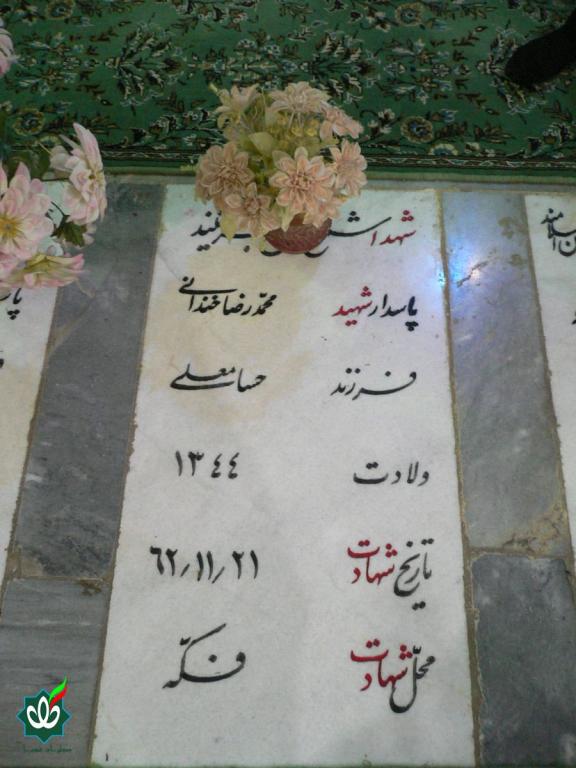 شهدا شمع محفل بشریتند
پاسدار شهید محمد رضا خندانی
فرزند حسامعلی
ولادت ۱۳۴۴
تاریخ شهادت ۶۲/۱۱/۲۱
محل شهادت فکه